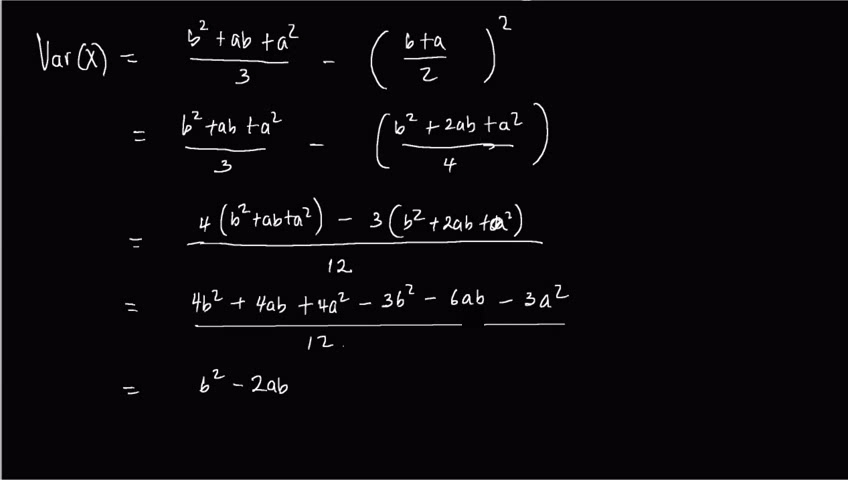 Var(X) = (b² + ab + a²)/3 − ((b+a)/2)²
= (b² + ab + a²)/3 − ((b² + 2ab + a²)/4)
= (4(b² + ab + a²) − 3(b² + 2ab + a²))/12
= (4b² + 4ab + 4a² − 3b² − 6ab − 3a²)/12
= b² − 2ab